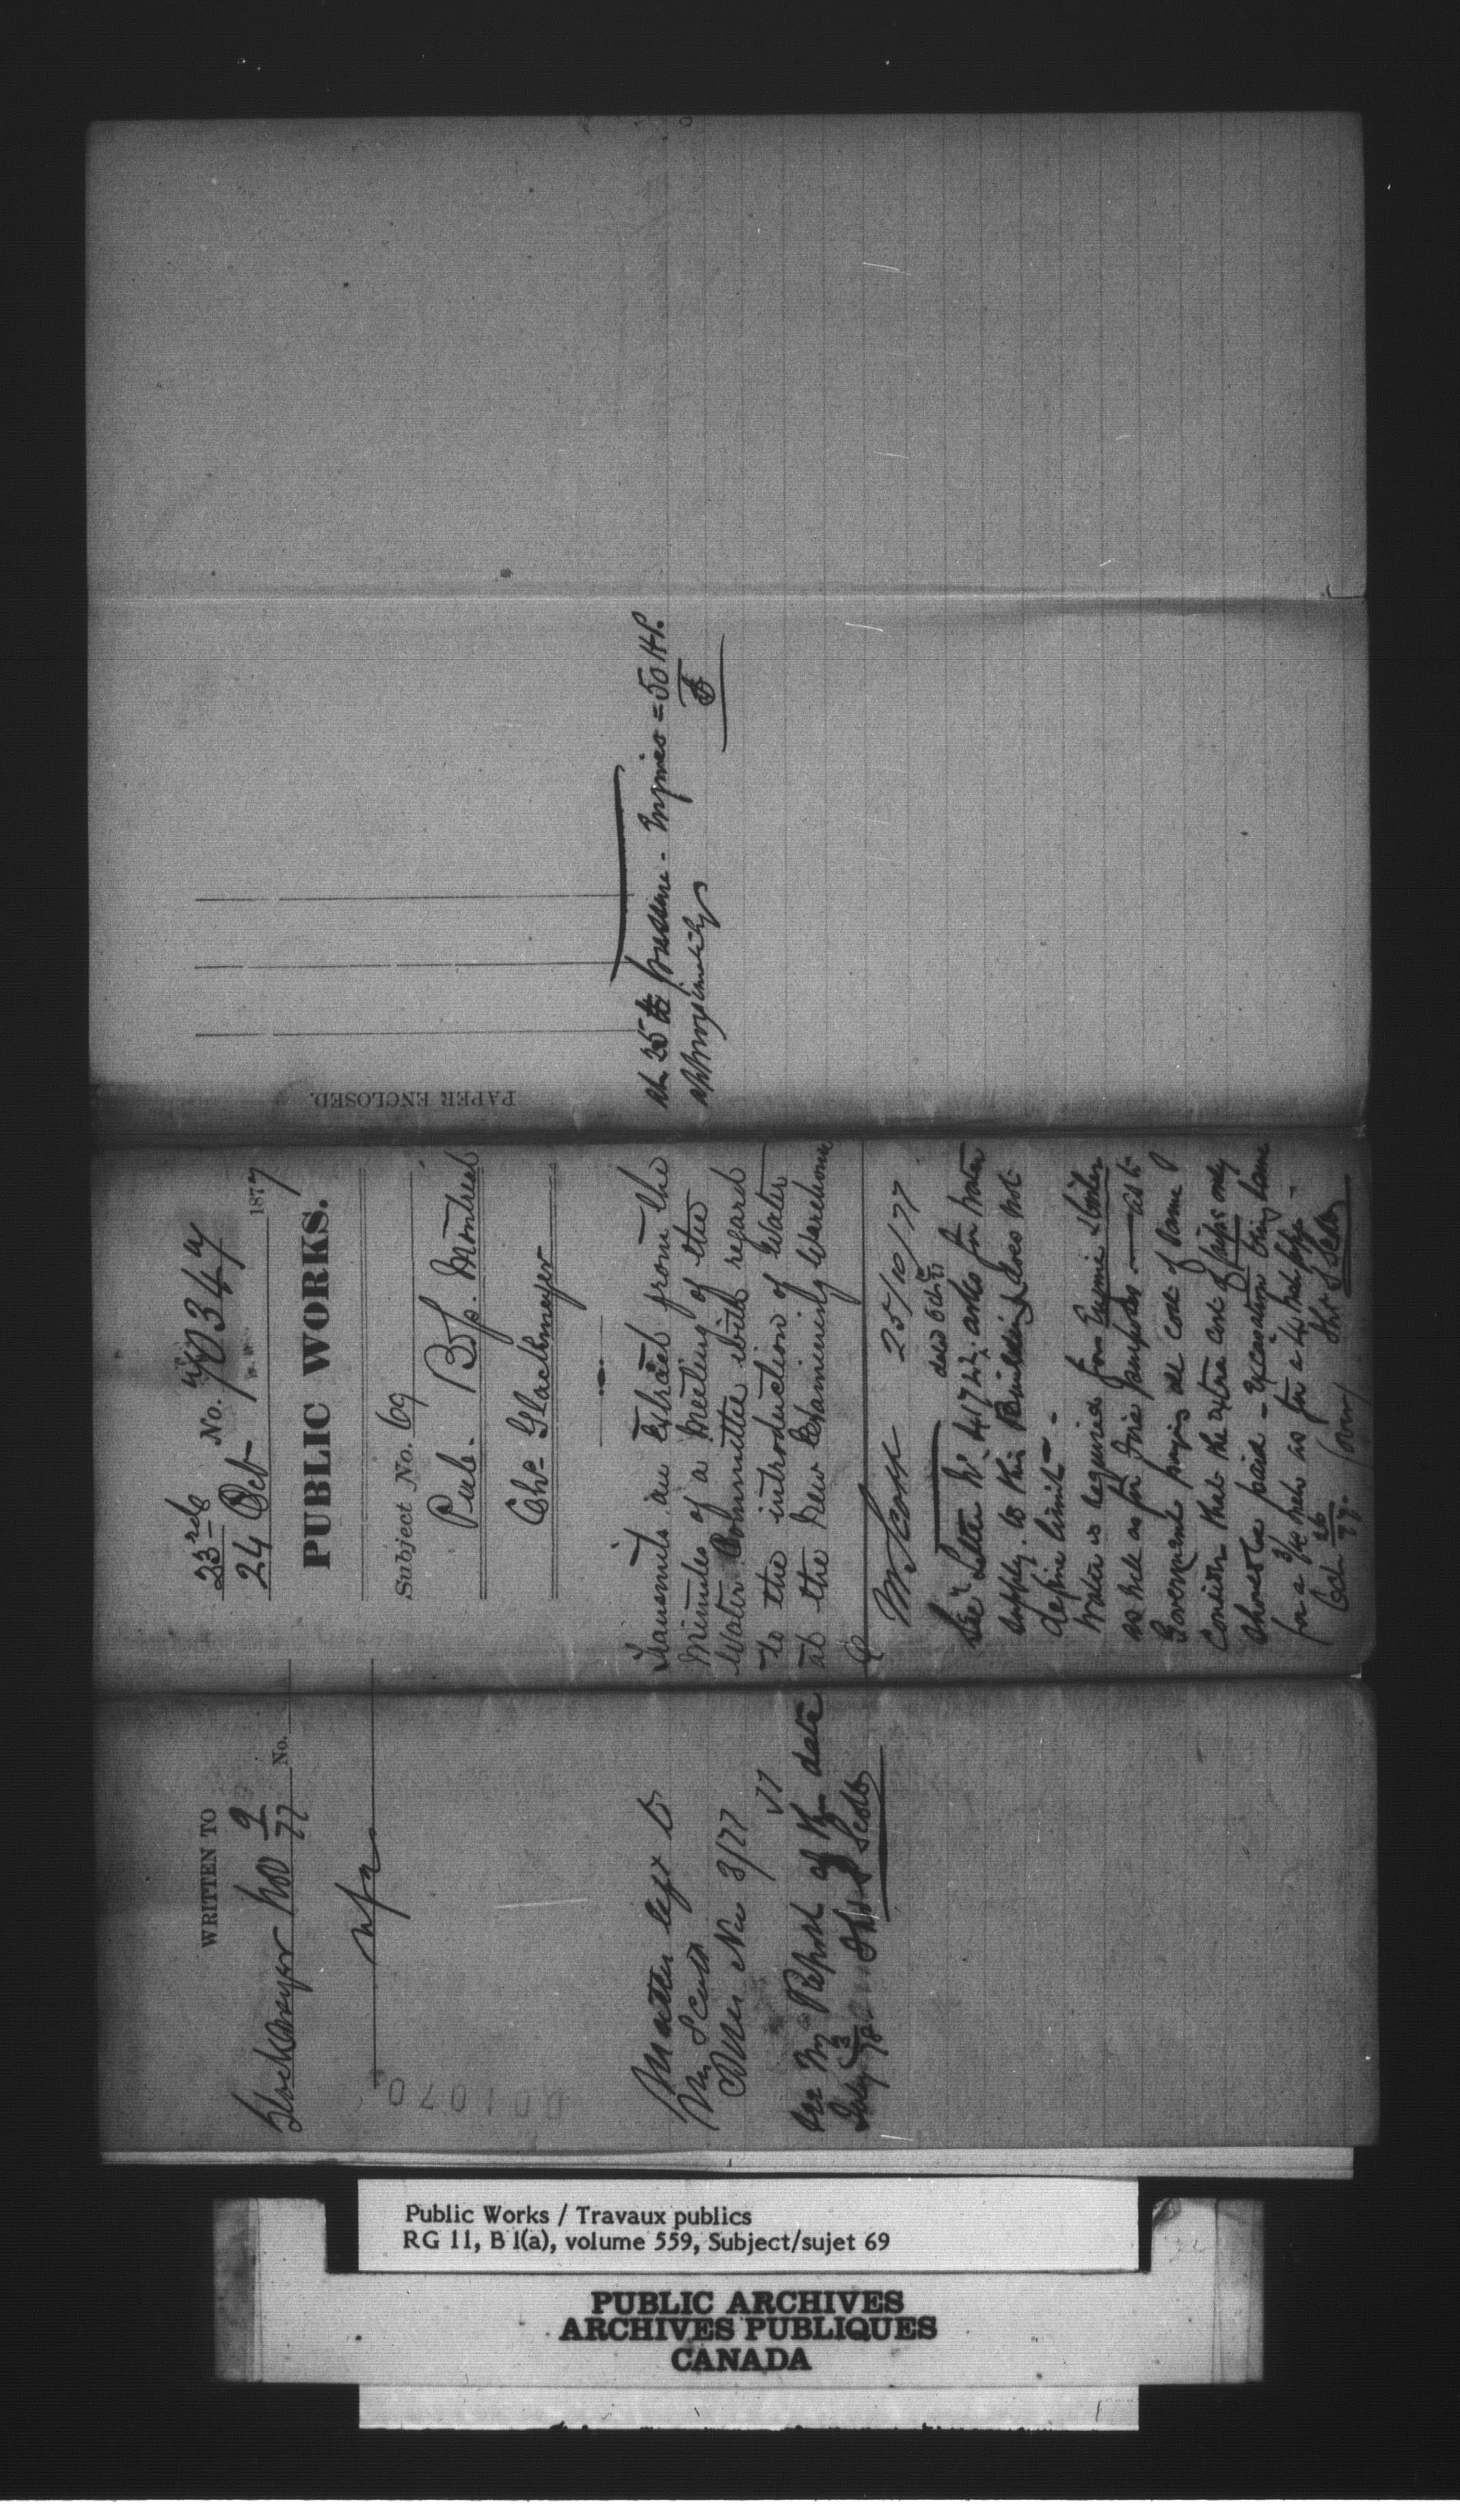 WRITTEN TO
Glackmeyer Nov 9/77 No.
001070
Matter left to
Mr Scott
Nov 3/77
See my Report of this date
Thos S Scott
23rd
24 Oct No. 70347 1877
PUBLIC WORKS.
Subject No. 69
Pub. Bgs. Montreal
Chs Glackmeyer
Transmits an Extract from the
Minutes of a Meeting of the
Water Committee with regard
to the introduction of Water
at the New Examining Warehouse
Mr Scott 25/10/77
See Letter No 41722 asks for water
supply to this Building does not
define limit -
Water is required for Engine & boiler
as well as for fire purposes - as to
Government paying all cost of same I
consider that the extra cost of pipes only
should be paid - Excavation being same
for a 3/4 inch as for a 4 inch pipe -
Oct 26/77. (over) Thos S Scott
PAPER ENCLOSED.
at 25 lb pressure - Engines = 50 H.P.
approximately
Public Works / Travaux publics
RG 11, B 1(a), volume 559, Subject/sujet 69
PUBLIC ARCHIVES
ARCHIVES PUBLIQUES
CANADA